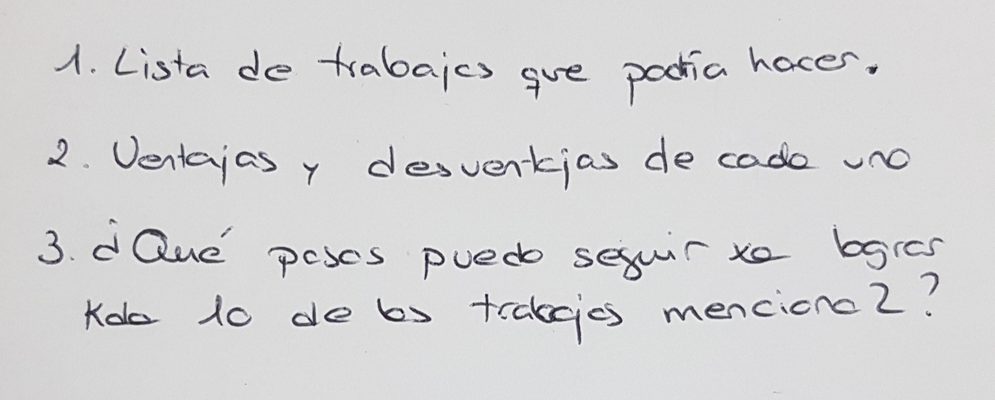 1. Lista de trabajos que podría hacer.
2. Ventajas y desventajas de cada uno
3. ¿Qué pasos puedo seguir xa lograr
Kda 1o de los trabajos menciona2?